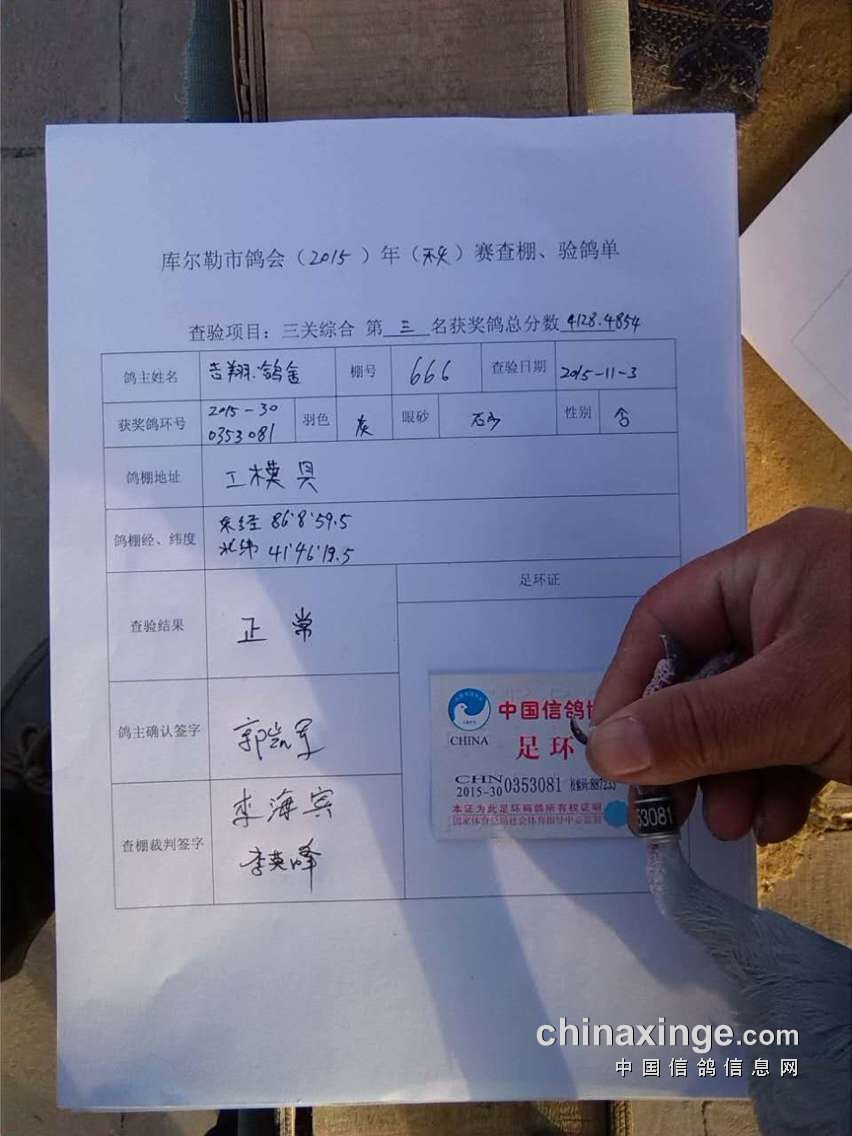 库尔勒市鸽会（2015）年（秋）赛查棚、验鸽单
查验项目：三关综合 第三名获奖鸽总分数4128.4854
鸽主姓名 吉翔鸽舍 棚号 666 查验日期 2015-11-3
获奖鸽环号 2015-30 0353081 羽色 灰 眼砂 石少 性别
鸽棚地址 工模具
鸽棚经、纬度 东经 86°8'59.5
北纬 41°46'19.5
足环证
查验结果 正常
鸽主确认签字
查棚裁判签字 李海宾
李英峰
中国信鸽
CHINA
足环
CHN
2015-30 0353081
本证为此足环码鸽所有权证明
国家体育总局社会体育指导中心监制
53081
chinaxinge.com
中国信鸽信息网